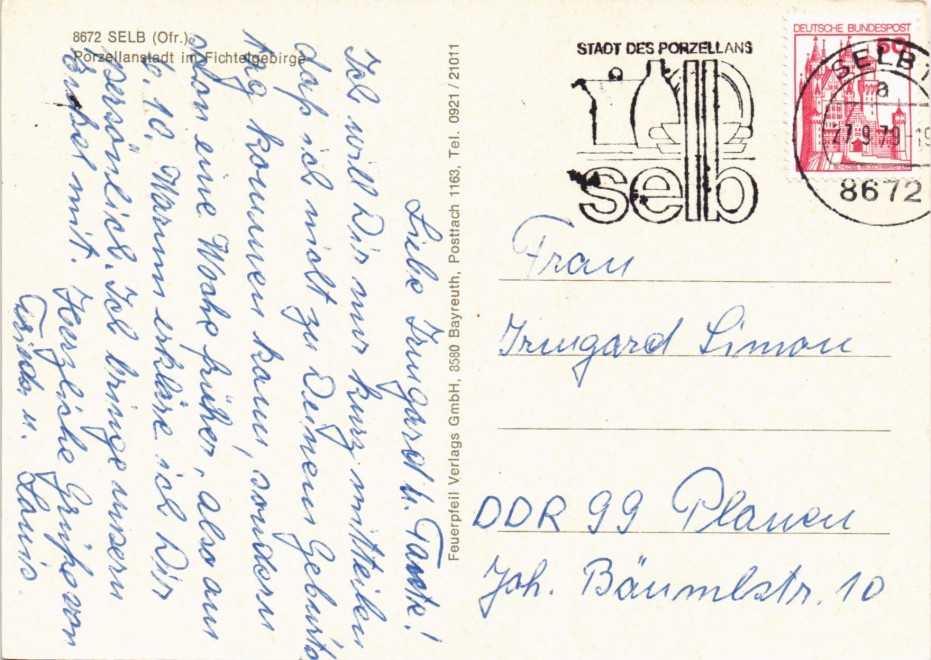 8672 SELB (Ofr.)
Porzellanstadt im Fichtelgebirge
Liebe Irmgard u. Tante!
Ich will Dir nur kurz mitteilen
daß ich nicht zu Deinem Geburts
tag kommen kann, sondern
schon eine Woche früher, also am
6. 10. Warum erkläre ich Dir
persönlich. Ich bringe unsern
Enkel mit.
Herzliche Grüße von
u.
Feuerpfeil Verlags GmbH, 8580 Bayreuth, Postfach 1163, Tel. 0921 / 21011
STADT DES PORZELLANS
selb
DEUTSCHE BUNDESPOST
60
SELB 1
a
27.9.79 19
8672
Frau
Irmgard Simon
DDR 99 Plauen
Joh. Bäumlstr. 10